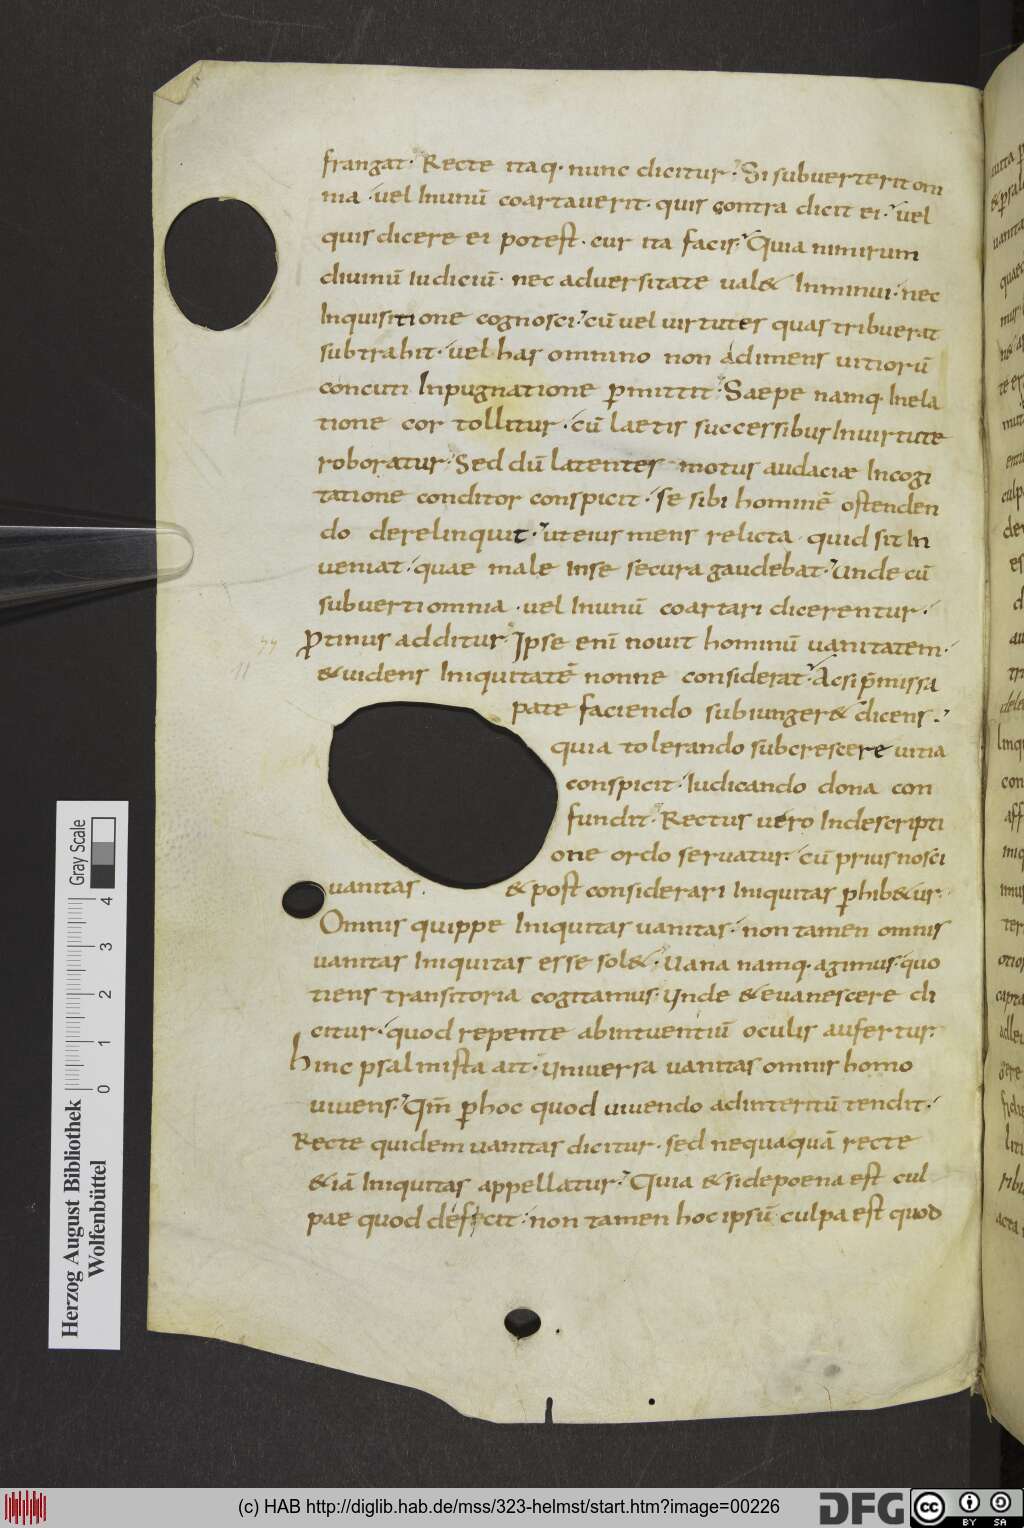 frangat· Recte itaq· nunc dicitur· Si subverterit om
nia · vel Inunū coartaverit· quis contra dicit ei· vel
quis dicere ei potest· cur ita facis· Quia nimirum
divinū Iudiciū· nec adversitate val& Inminui· nec
Inquisitione cognosci· cū vel virtutes quas tribuerat
subtrahit· vel has omnino non adimens vitiorū
concuti Inpugnatione pmittit· Saepe namq· Inela
tione cor tollitur· cū laetis successibus Invirtute
roboratur· Sed dū latentes motus audaciæ Incogi
tatione conditor conspicit· se sibi hominē ostenden
do derelinquit· ut eius mens relicta quid sit In
veniat· quae male Inse secura gaudebat· Unde cū
subverti omnia · vel Inunū coartari dicerentur·
ptinus additur· Ipse enī novit hominū vanitatem·
& videns Iniquitatē nonne considerat· Acsi p̄missa
pate faciendo subiunger& dicens·
quia tolerando subcrescere vitia
conspicit· Iudicando dona con
fundit· Rectus vero Indescripti
one ordo servatur· cū prius nosci
vanitas· & post considerari Iniquitas phib&ur·
Omnis quippe Iniquitas vanitas· non tamen omnis
vanitas Iniquitas esse sol&· Vana namq· agimus· quo
tiens transitoria cogitamus· Unde & evanescere di
citur· quod repente abintuentiū oculis aufertur·
hinc psalmista ait· Universa vanitas omnis homo
vivens· Qm̄ phoc quod vivendo adinteritū tendit·
Recte quidem vanitas dicitur· sed nequaquā recte
& iā Iniquitas appellatur· Quia & side poena est cul
pae quod deficit· non tamen hoc ipsū culpa est quod
Gray Scale
0 1 2 3 4
Herzog August Bibliothek
Wolfenbüttel
(c) HAB http://diglib.hab.de/mss/323-helmst/start.htm?image=00226
DFG
cc BY SA